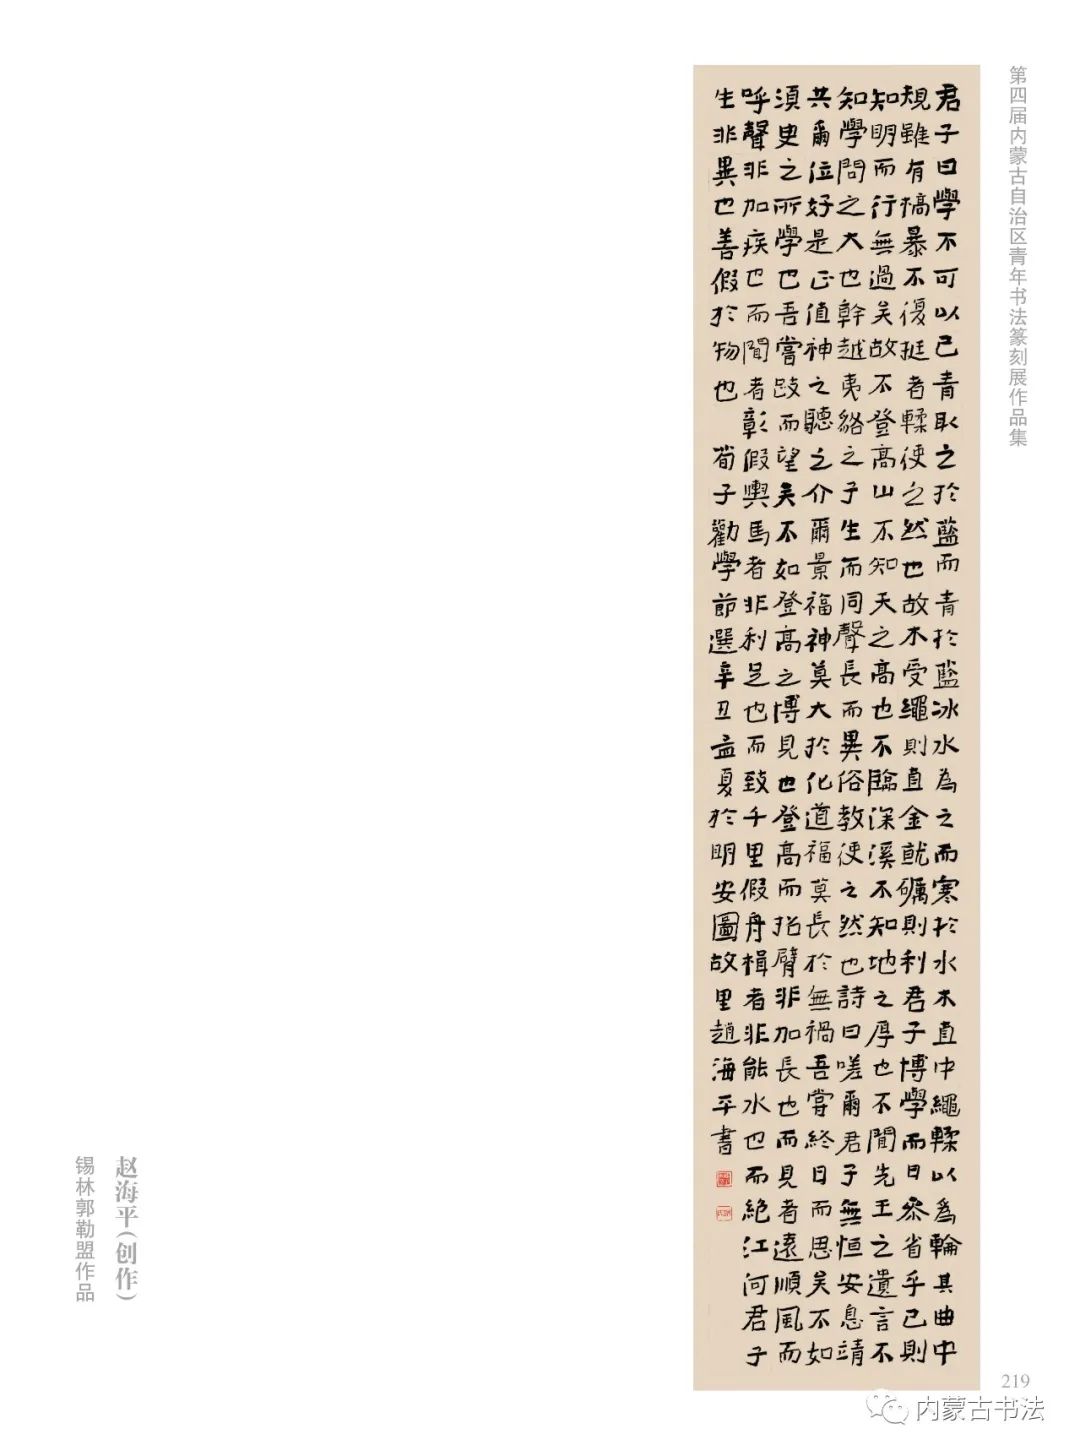 第四届内蒙古自治区青年书法篆刻展作品集
君子曰學不可以已青取之於藍而青於藍冰水為之而寒於水木直中繩輮以為輪其曲中
規雖有槁暴不復挺者輮使之然也故木受繩則直金就礪則利君子博學而日參省乎己則
知明而行無過矣故不登高山不知天之高也不臨深溪不知地之厚也不聞先王之遺言不
知學問之大也幹越夷貉之子生而同聲長而異俗教使之然也詩曰嗟爾君子無恒安息靖
共爾位好是正值神之聽之介爾景福神莫大於化道福莫長於無禍吾嘗終日而思矣不如
須臾之所學也吾嘗跂而望矣不如登高之博見也登高而招臂非加長也而見者遠順風而
呼聲非加疾也而聞者彰假輿馬者非利足也而致千里假舟楫者非能水也而絕江河君子
生非異也善假於物也 荀子勸學節選辛丑孟夏於明安圖故里趙海平書
赵海平(创作)
锡林郭勒盟作品
219
内蒙古书法